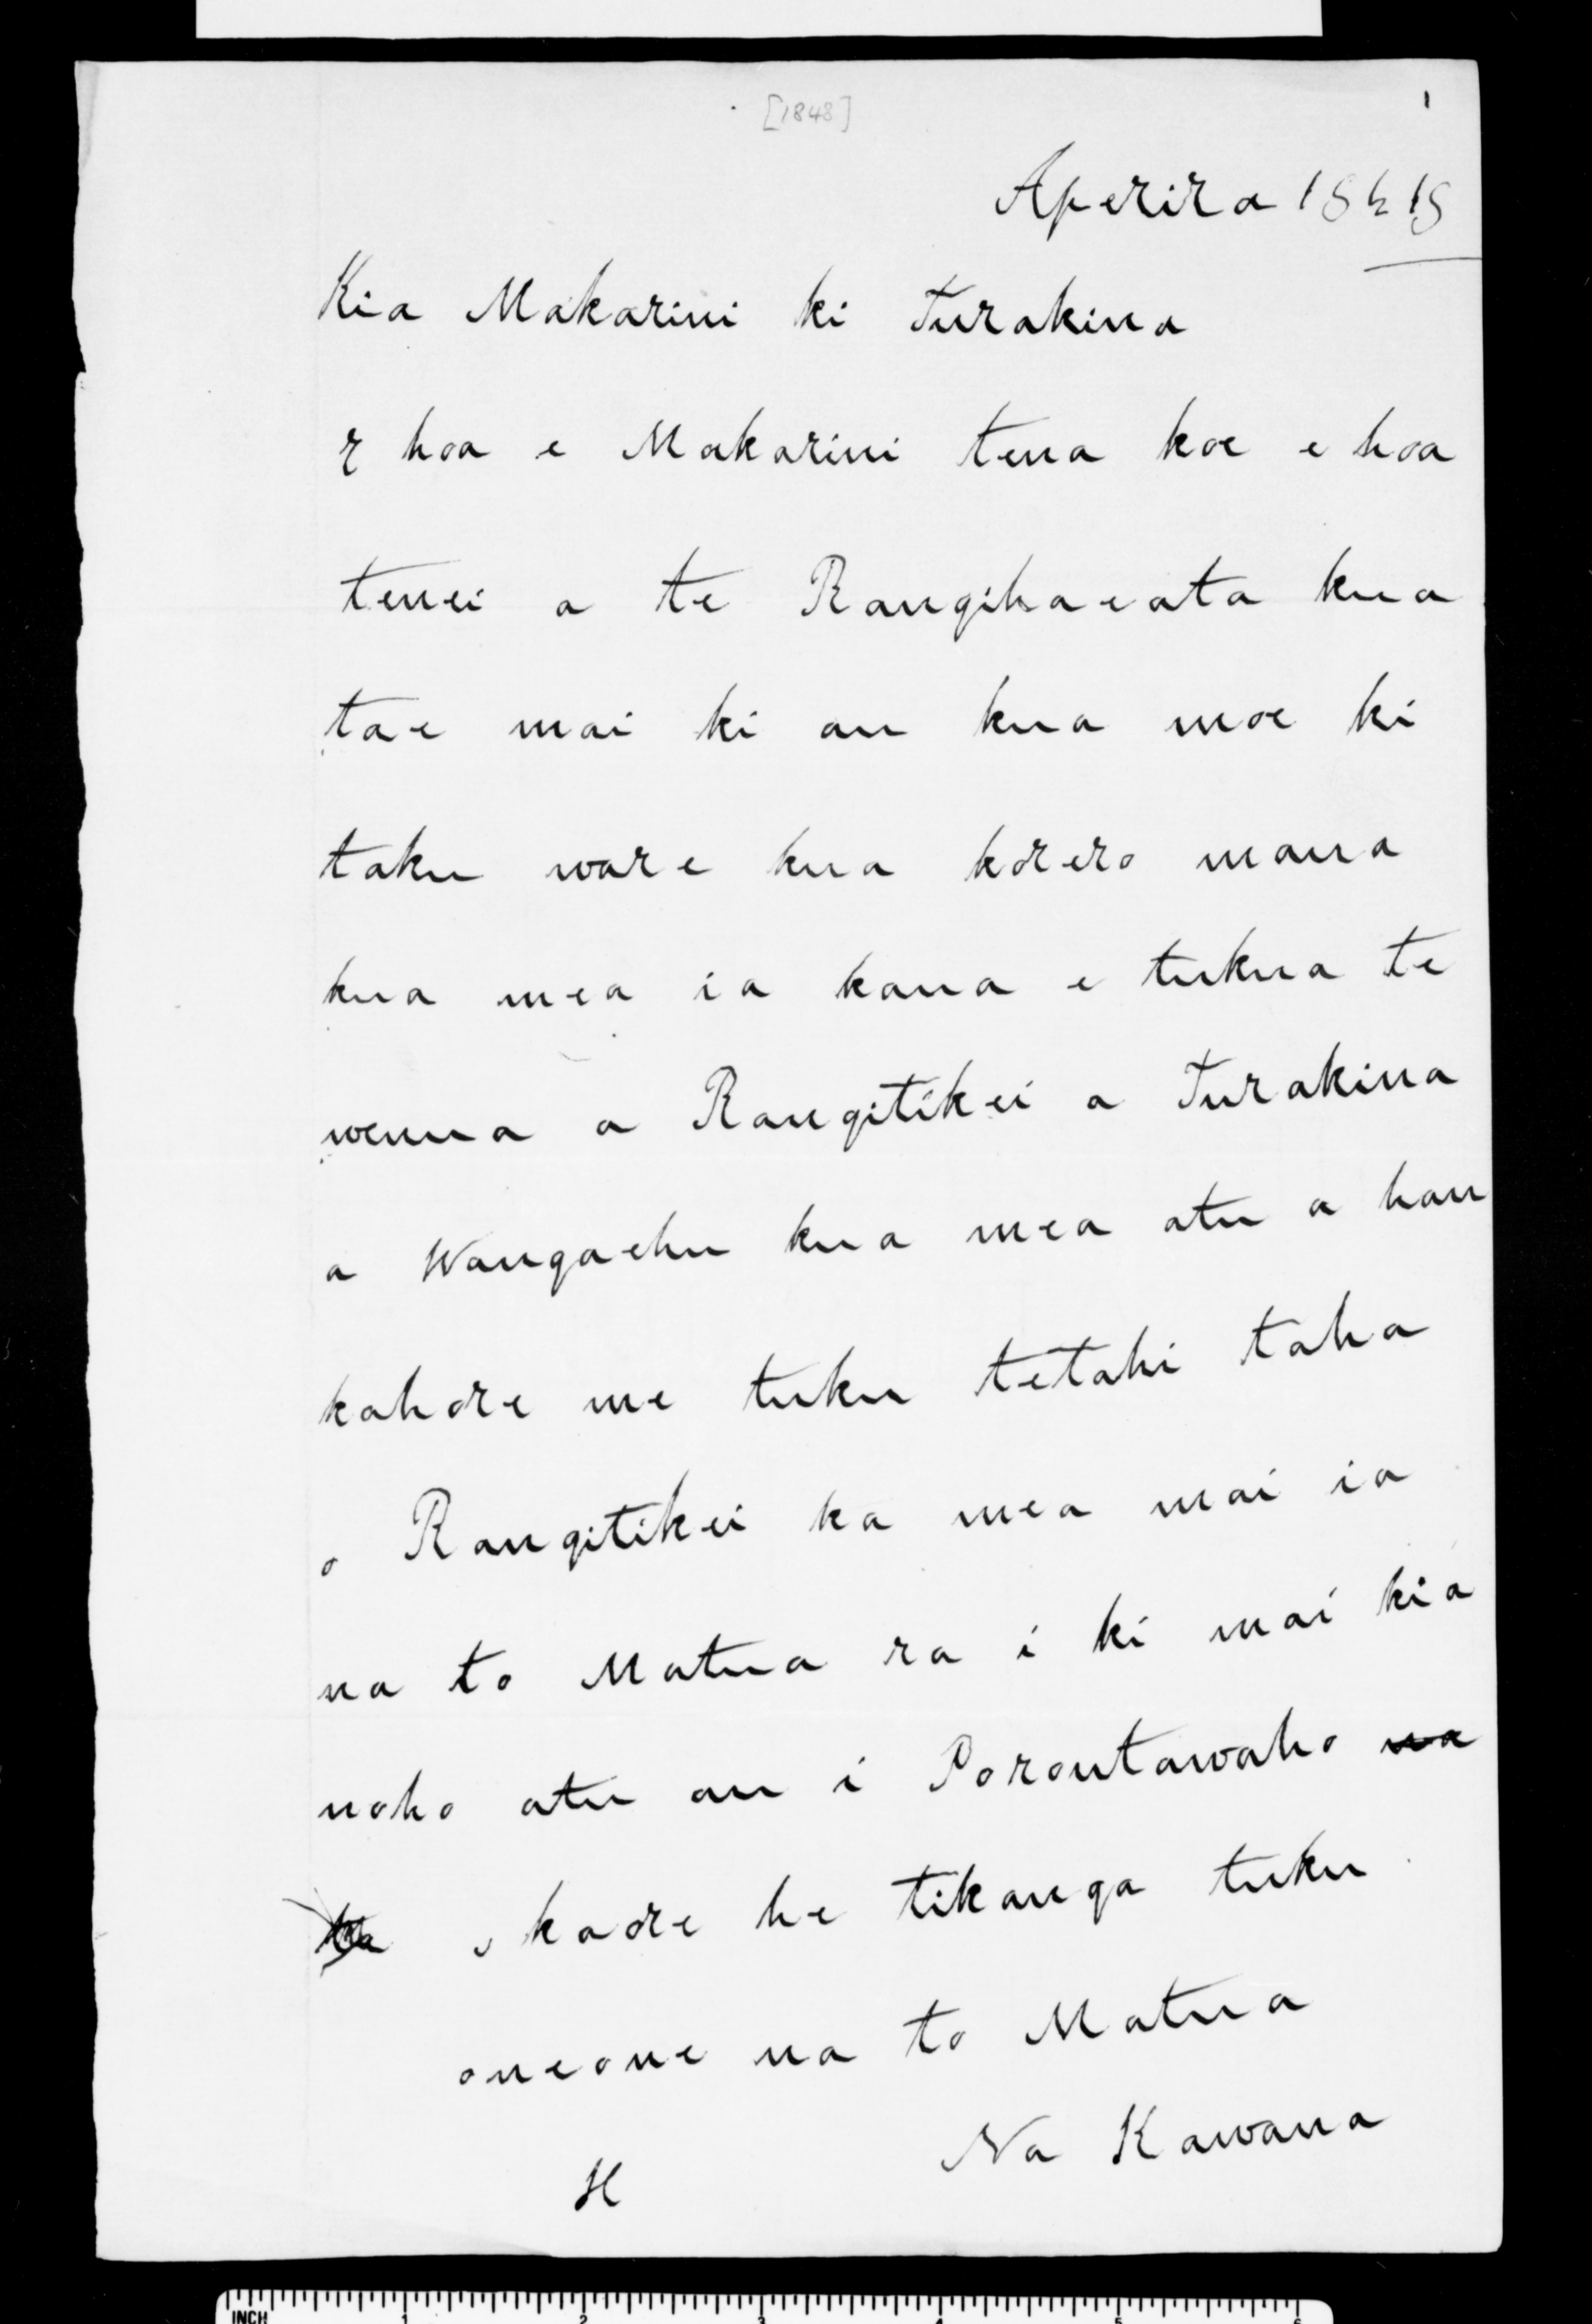 [1848]
1
Aperira 18
Kia Makarini ki Turakina
E hoa e Makarini tena koe e hoa
tenei a te Rangihaeata kua
tae mai ki au kua moe ki
taku ware kua korero maua
kua mea ia kaua e tukua te
wenua a Rangitikei a Turakina
a Wangaehu kua mea atu a hau
kahore me tuku tetahi taha
o Rangitikei ka mea mai ia
na to Matua ra i ki mai kia
noho atu au i Poroutawaho na
kaore he tikanga tuku
oneone na to Matua
Na Kawana
H
INCH 1 2 3 4 5 6